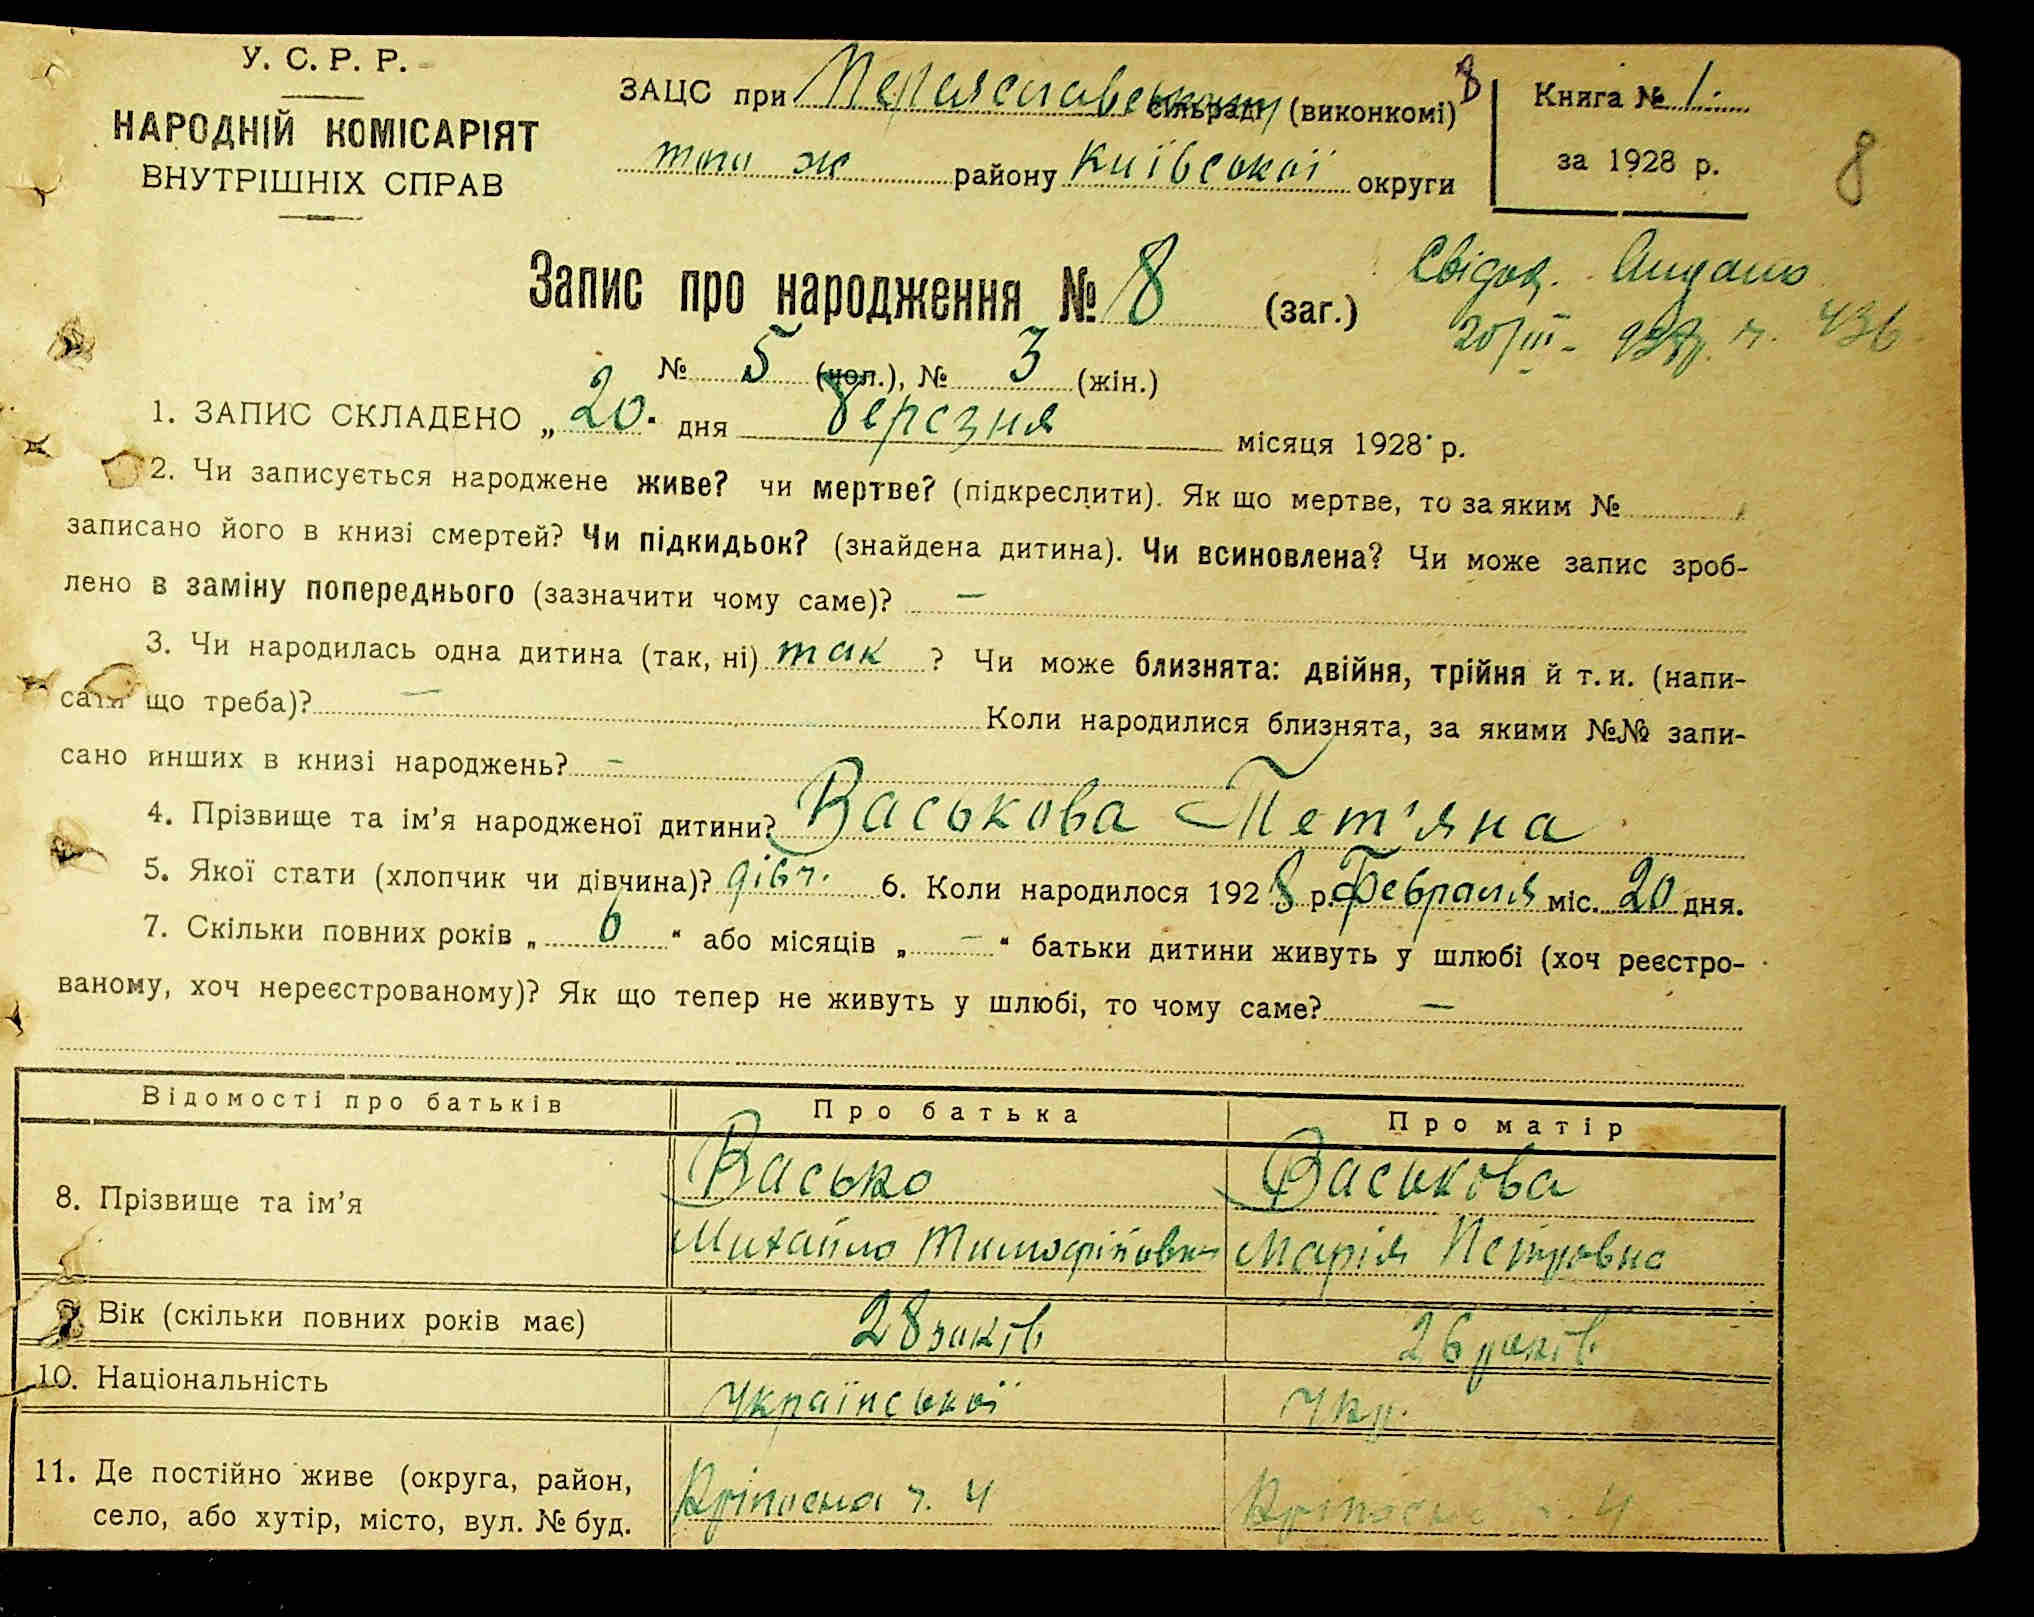 У. С. Р. Р.
НАРОДНІЙ КОМІСАРІЯТ
ВНУТРІШНІХ СПРАВ
ЗАЦС при Переяславському сільраді (виконкомі)
того ж району Київської округи
Книга № 1.
за 1928 р.
8
Запис про народження № 8 (заг.)
Свідоц. видано
20/III- 928р. ч. 436
№ 5 (чол.), № 3 (жін.)
1. ЗАПИС СКЛАДЕНО „20" дня березня місяця 1928 р.
2. Чи записується народжене живе? чи мертве? (підкреслити). Як що мертве, то за яким №
записано його в книзі смертей? Чи підкидьок? (знайдена дитина). Чи всиновлена? Чи може запис зроб-
лено в заміну попереднього (зазначити чому саме)? —
3. Чи народилась одна дитина (так, ні) так ? Чи може близнята: двійня, трійня й т. и. (напи-
сати що треба)? — Коли народилися близнята, за якими №№ запи-
сано инших в книзі народжень? –
4. Прізвище та ім'я народженої дитини? Васькова Тет'яна
5. Якої стати (хлопчик чи дівчина)? дівч. 6. Коли народилося 1928 р. Февраля міс. 20 дня.
7. Скільки повних років „ 6 " або місяців „ – " батьки дитини живуть у шлюбі (хоч реєстро-
ваному, хоч нереєстрованому)? Як що тепер не живуть у шлюбі, то чому саме? —
Відомості про батьків Про батька Про матір
8. Прізвище та ім'я Васько Васькова
Михайло Тимофійович Марія Петровна
9. Вік (скільки повних років має) 28 років 26 років
10. Національність Української Укр.
11. Де постійно живе (округа, район, Кріпосна ч. 4 Кріпосна ч. 4
село, або хутір, місто, вул. № буд.